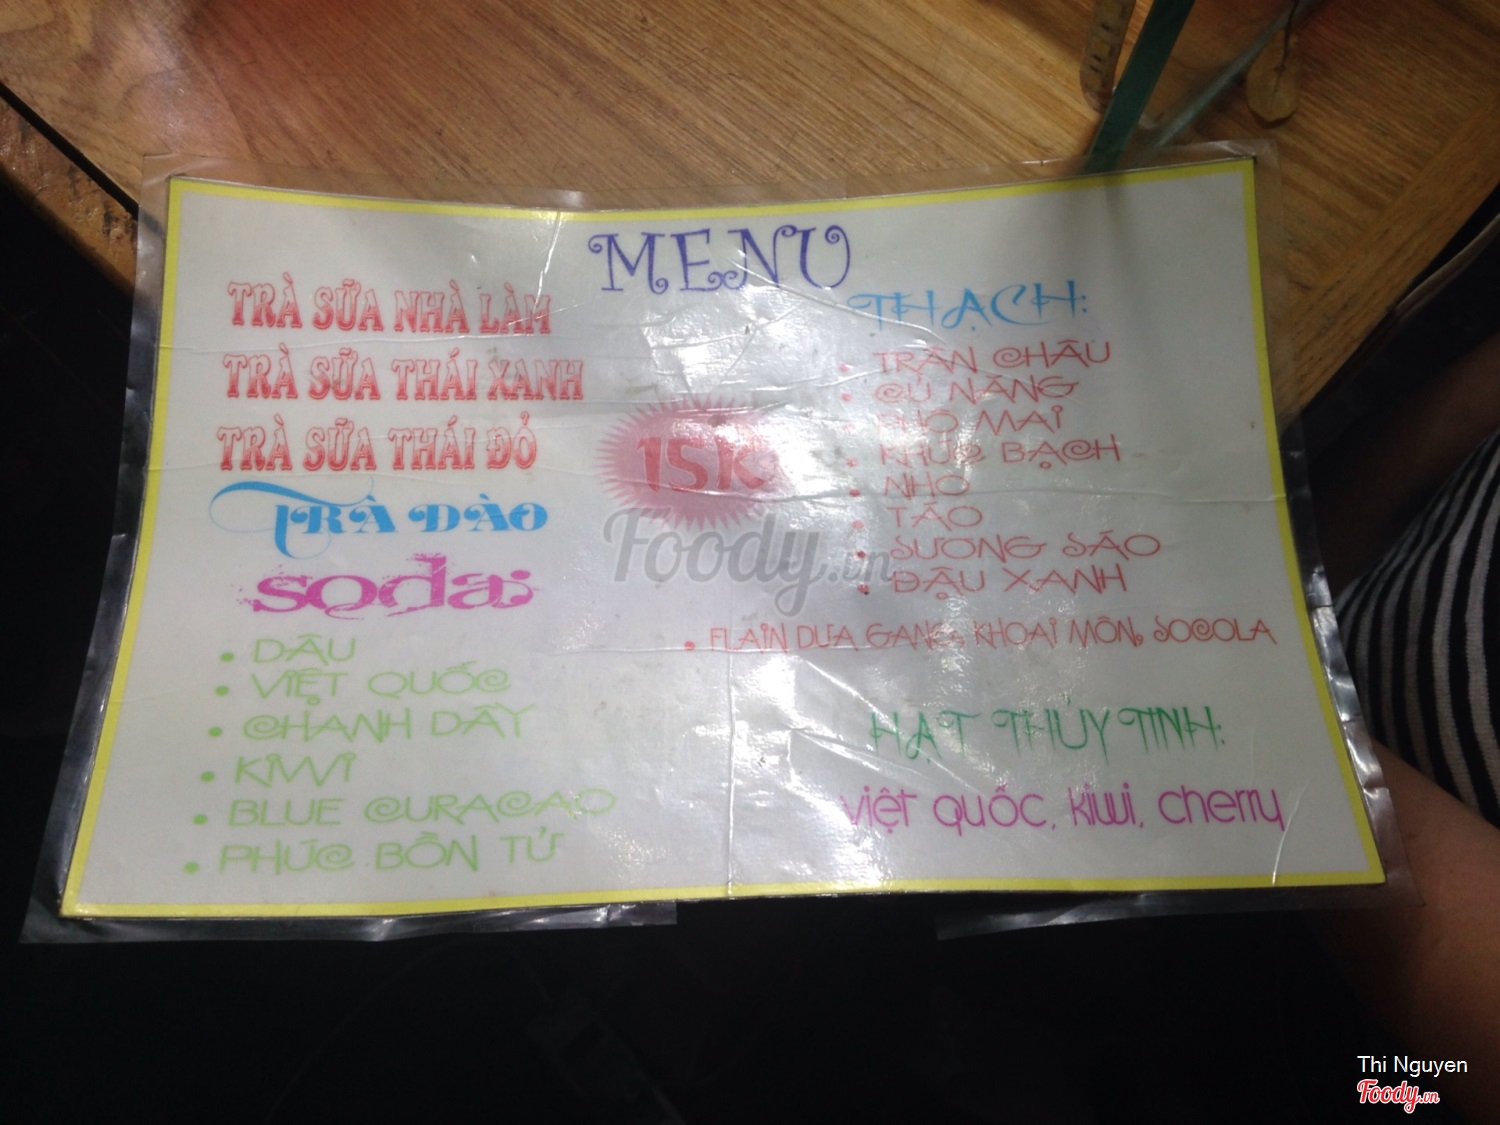 MENU
TRÀ SỮA NHÀ LÀM
TRÀ SỮA THÁI XANH
TRÀ SỮA THÁI ĐỎ
TRÀ ĐÀO
soda:
• DÂU
• VIỆT QUỐC
• CHANH DÂY
• KIWI
• BLUE CURACAO
• PHÚC BỒN TỬ
15K
THẠCH:
• TRÂN CHÂU
• CỦ NĂNG
• PHÔ MAI
• KHÚC BẠCH
• NHO
• TÁO
• SƯƠNG SÁO
• ĐẬU XANH
• FLAIN DƯA GANG, KHOAI MÔN, SOCOLA
HẠT THỦY TINH:
việt quốc, kiwi, cherry
Foody.vn
Thi Nguyen
Foody.vn